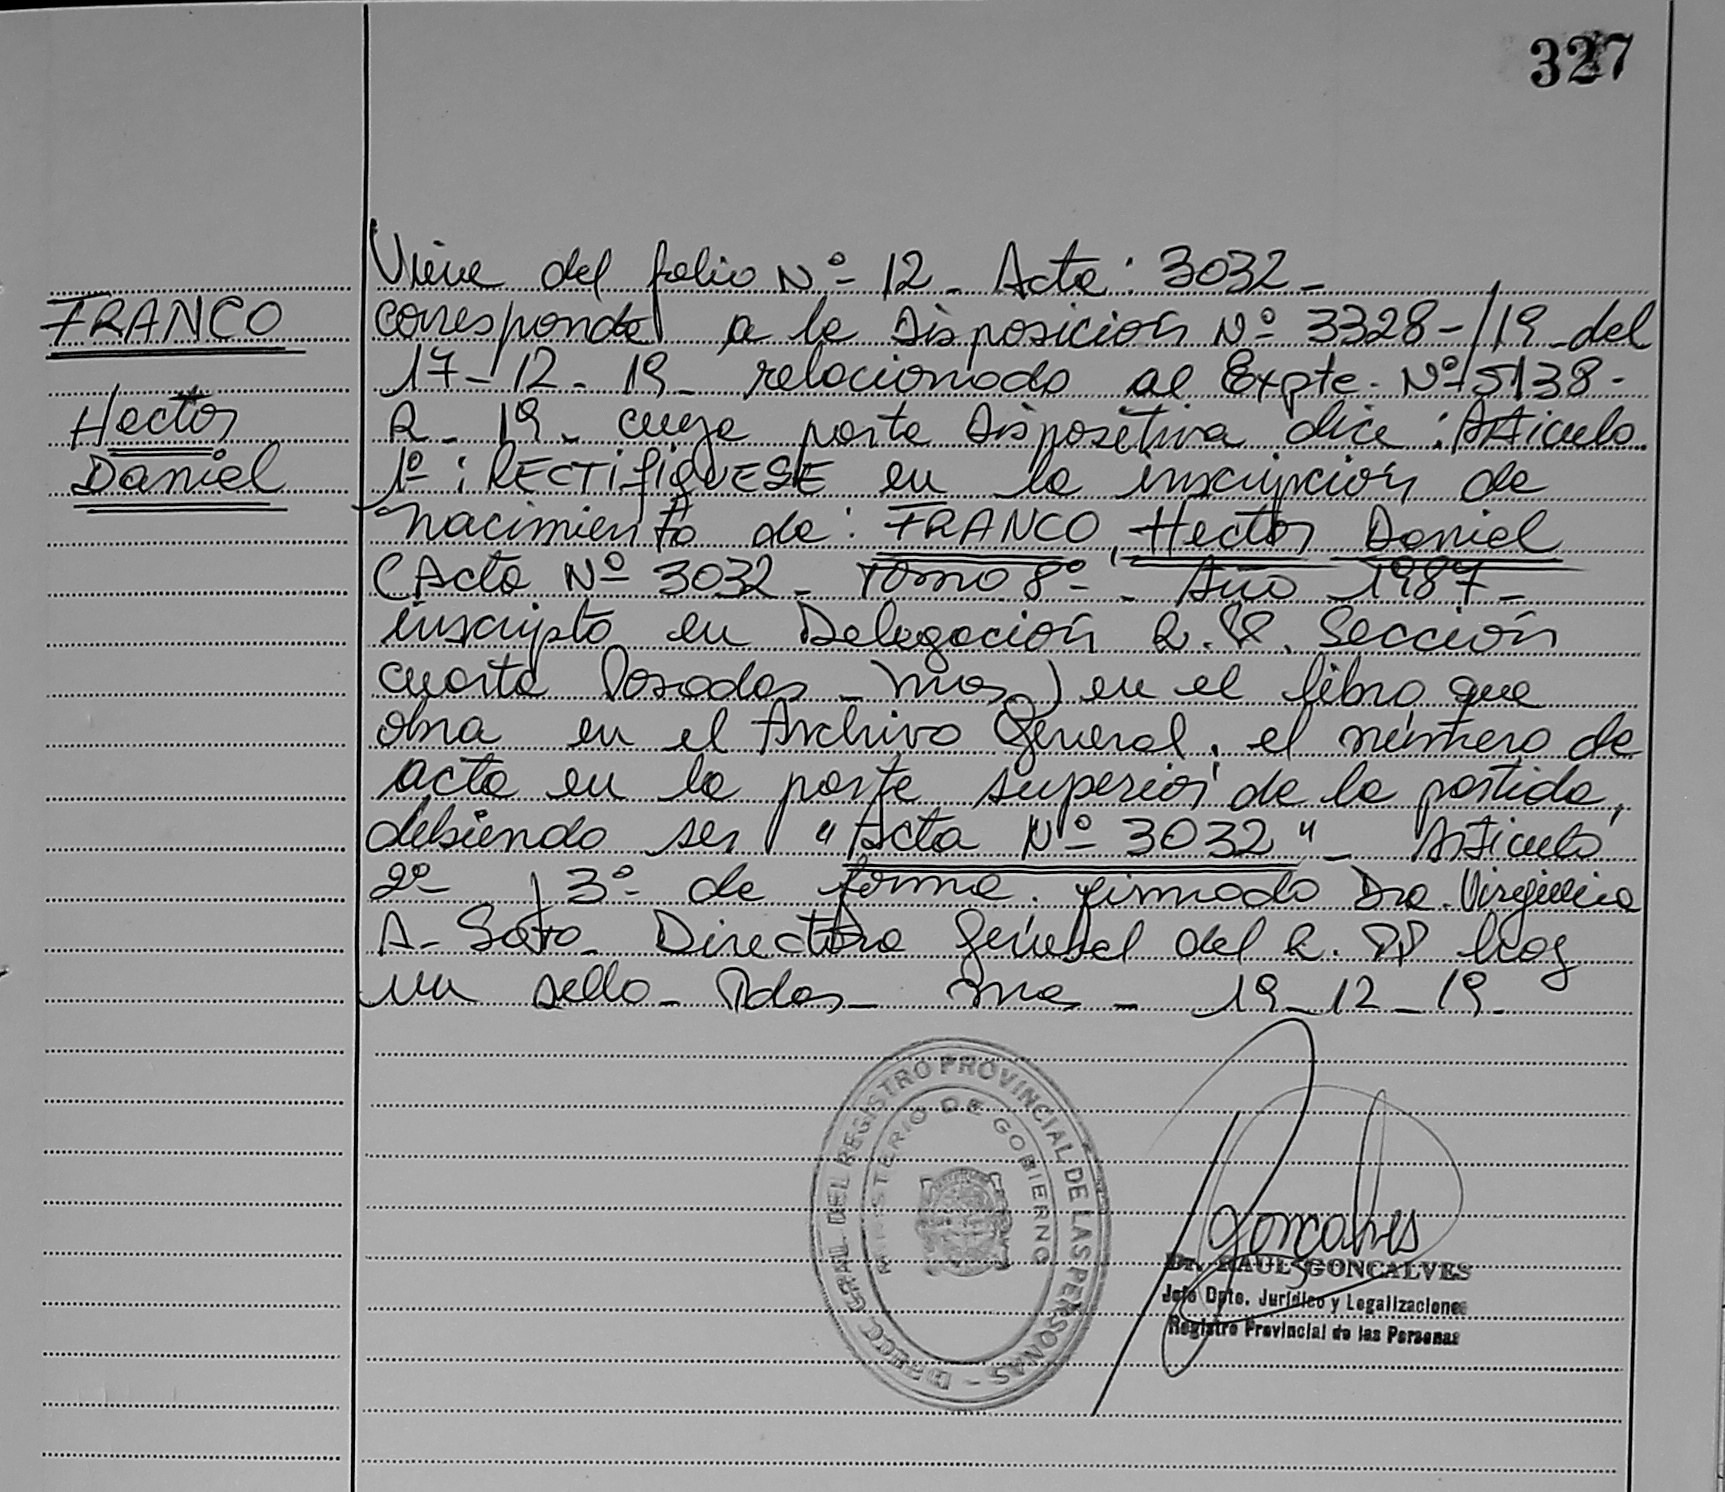 327
FRANCO
Hector
Daniel
Viene del folio Nº 12 - Acta: 3032 -
corresponde a la Disposición Nº 3328-/19 del
17-12-19- relacionado al Expte. Nº 5138-
R-19- cuya parte Dispositiva dice: Articulo
1º: RECTIFIQUESE en la inscripción de
nacimiento de: FRANCO, Hector Daniel
(Acta Nº 3032 - Tomo 8º - Año 1987 -
inscripto en Delegación R.P. Sección
cuarta Posadas - Mnes) en el libro que
obra en el Archivo General, el número de
acta en la parte superior de la partida,
debiendo ser "Acta Nº 3032" - Articulo
2º y 3º de forma. firmado Dra. Virginia
A. Soto - Directora General del R.PP hay
un sello - Pdas - Mnes - 19-12-19.
DIRECC. GRAL. DEL REGISTRO PROVINCIAL DE LAS PERSONAS -
MINISTERIO DE GOBIERNO
Goncalves
Dr. RAUL GONCALVES
Jefe Dpto. Jurídico y Legalizaciones
Registro Provincial de las Personas